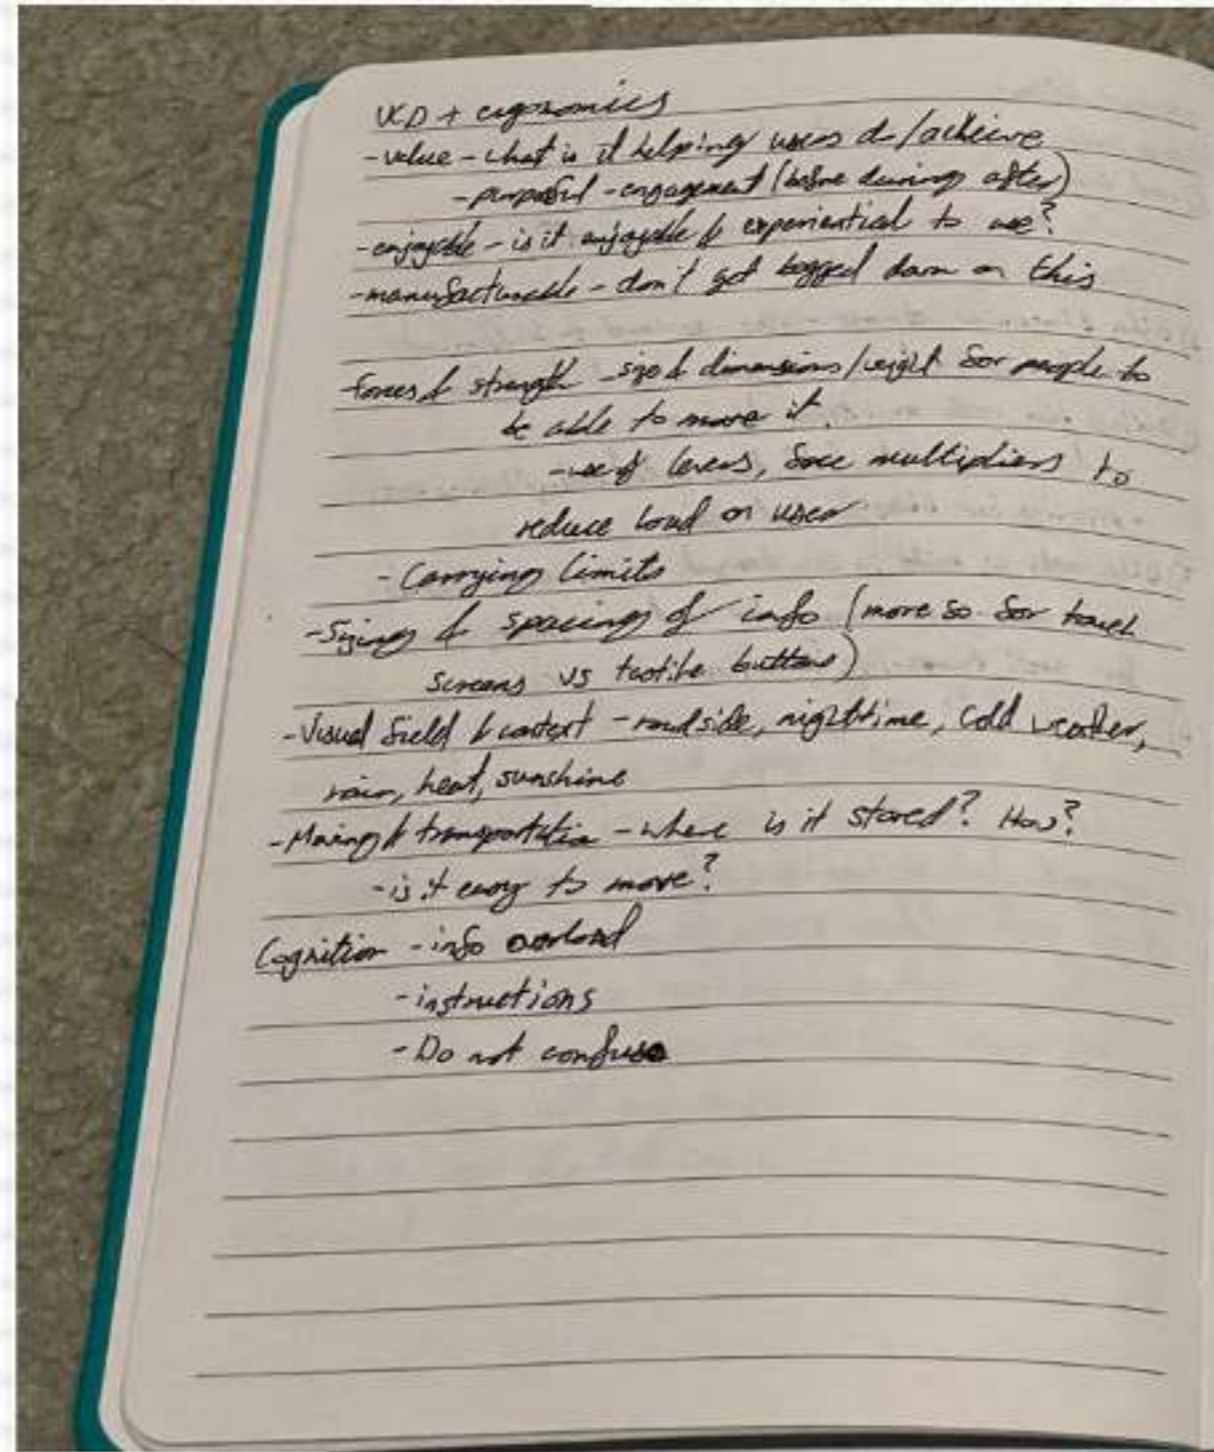 UCD + ergonomics
-value - what is it helping users do/acheive
-purposful - engagement (before during after)
-enjoyable - is it enjoyable & experiential to use?
-manufacturable - don't get bogged down on this
forces & strength - size & dimensions/weight for people to
be able to move it.
-use of levers, force multipliers to
reduce load on user
- Carrying limits
-Sizing & spacing of info (more so for touch
screens vs tactile buttons)
-Visual field & context - roadside, nighttime, cold weather,
rain, heat, sunshine
-Moving & transportation - where is it stored? How?
-is it easy to move?
Cognition - info overload
-instructions
-Do not confuse